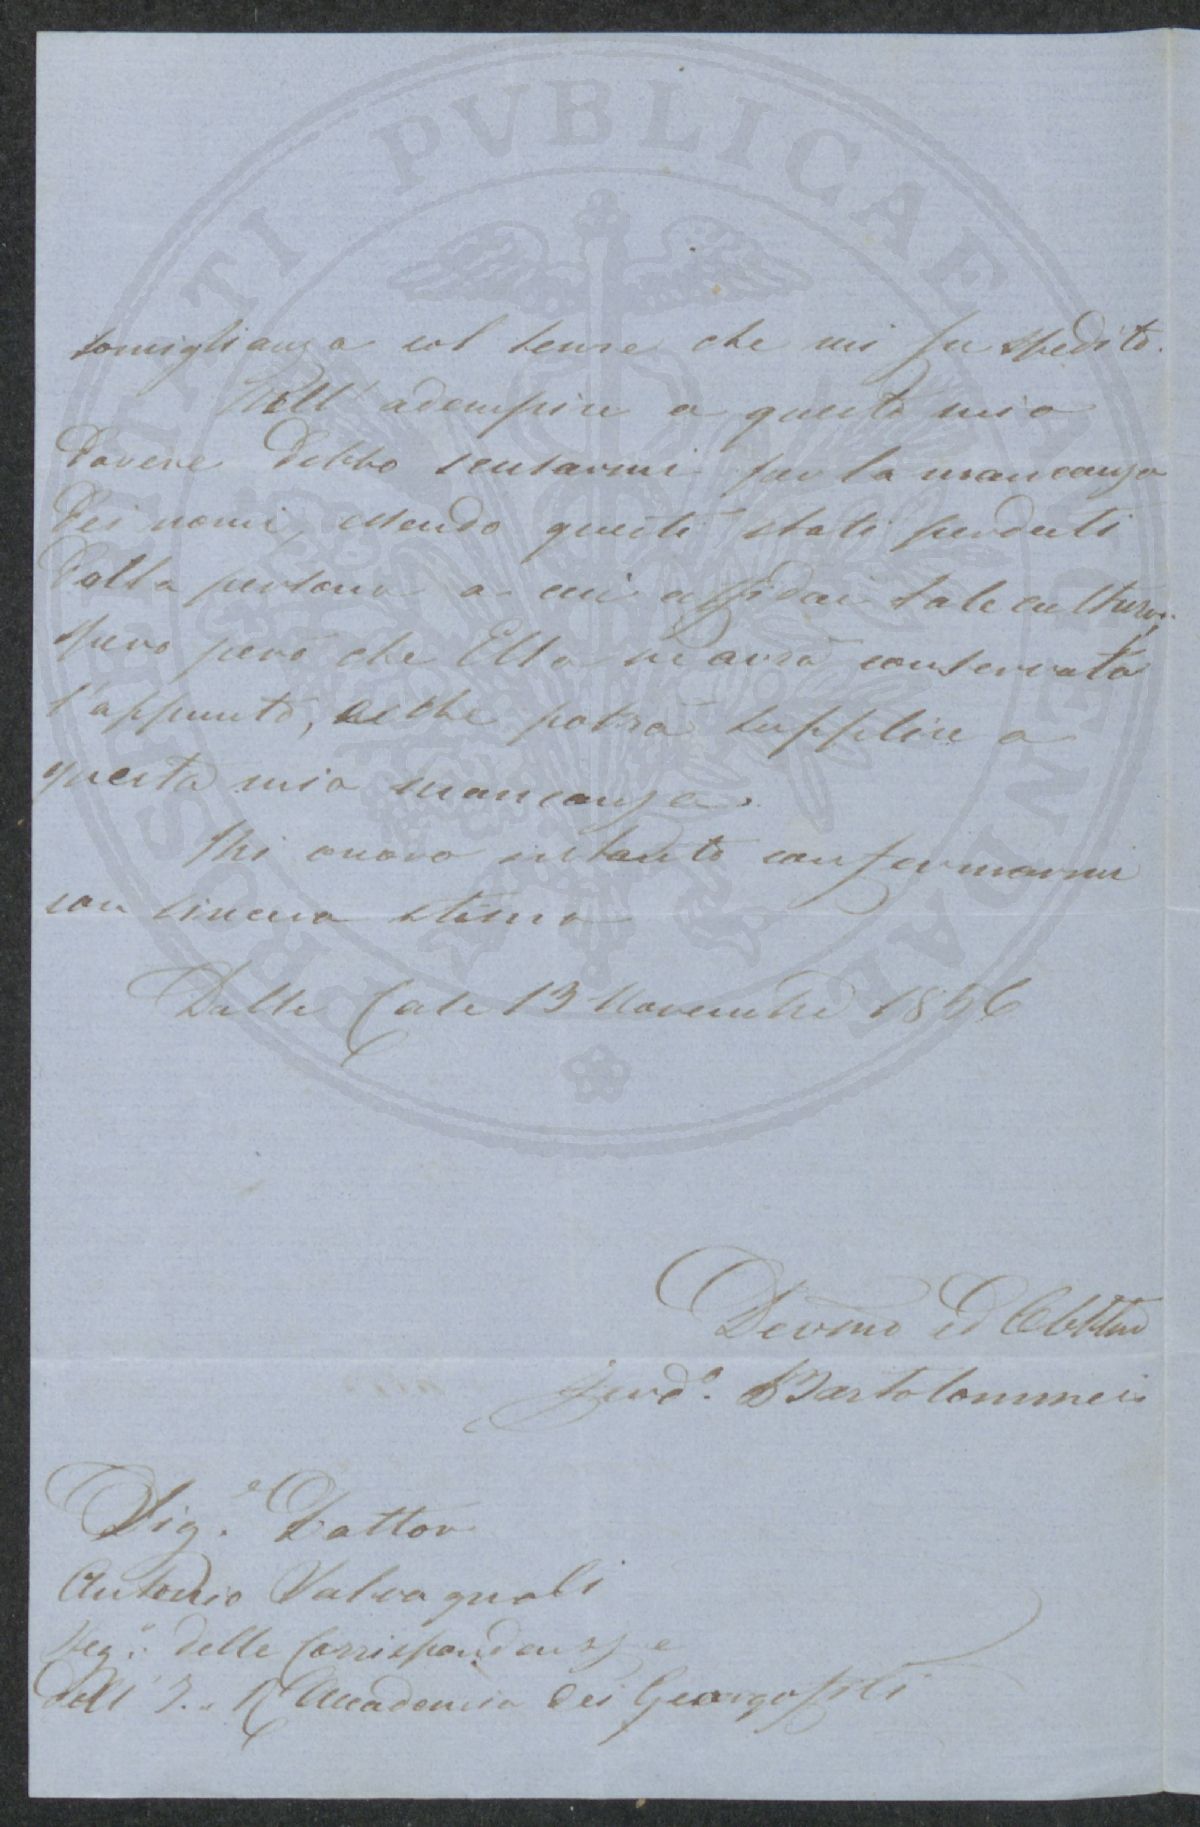 PROSPERITATI PVBLICAE AVGENDAE
somiglianza col seme che mi fu spedito.
Nell' adempire a questo mio
dovere debbo scusarmi per la mancanza
dei nomi, essendo questi stati perduti
dalla persona a cui affidai tale cultura,
spero però che Ella ne avrà conservato
l'appunto, che potrà supplire a
questa mia mancanza.
Mi onoro intanto confermarmi
con sincera stima
Dalle Case 13 Novembre 1856
Devmo ed Obblmo
Ferd.o Bartolommei
Sig.e Dottor
Antonio Salvagnoli
Seg.o delle Corrispondenze
dell' I. R. Accademia dei Georgofili